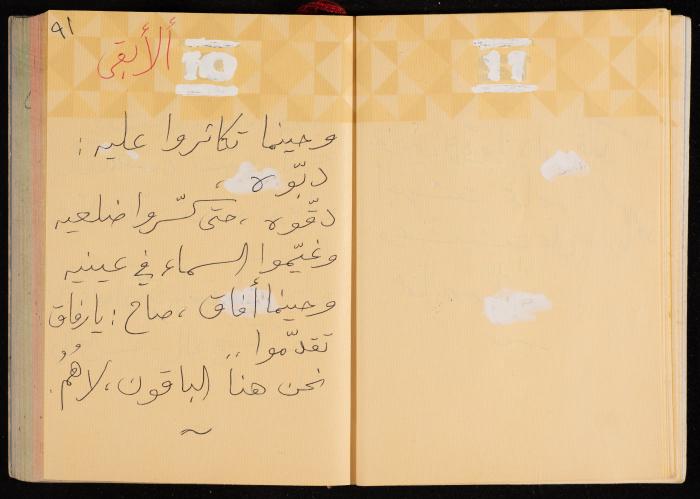 ٩١
ألأبقى
10
11
وحينما تكاثروا عليه :
دبّوه ،
دقّوه ، حتى كسّروا ضلعيه
وغيّموا السماء في عينيه
وحينما أفاق ، صاح : يا رفاق
تقدّموا ..
نحن هنا الباقون ، لا هُمُ .